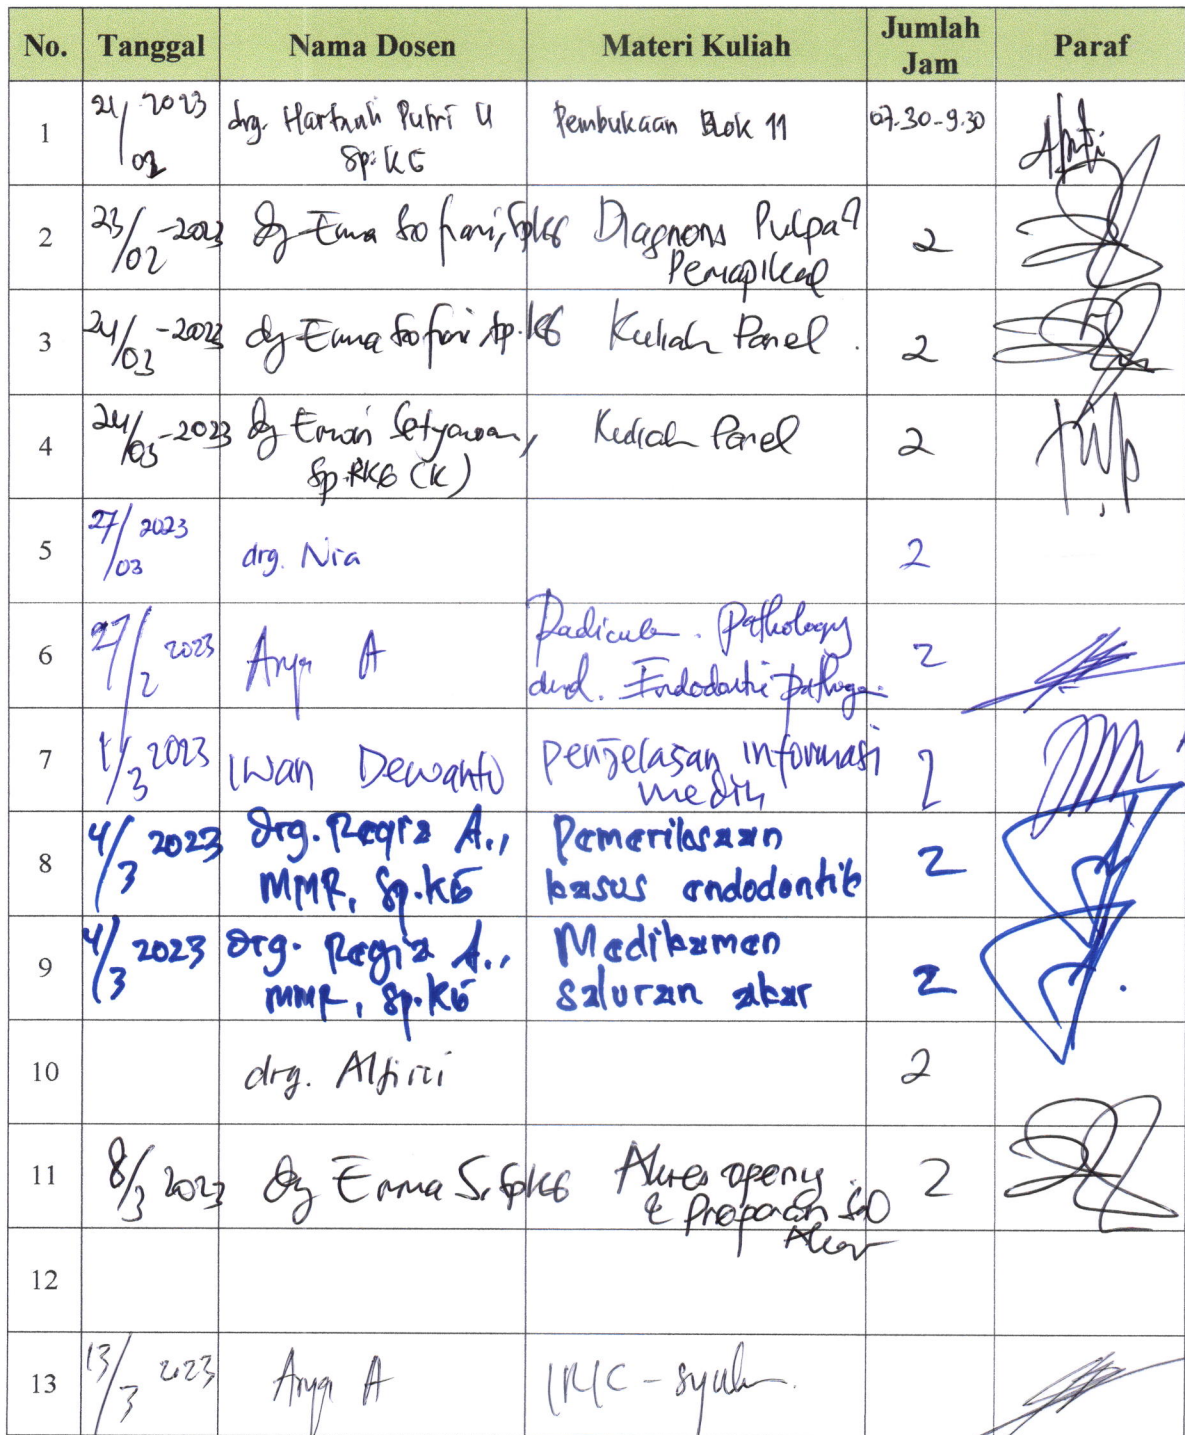 No. Tanggal Nama Dosen Materi Kuliah Jumlah Jam Paraf
1 21/02 2023 drg. Hartanti Putri U Sp.KG Pembukaan Blok 11 07.30-9.30
2 23/02-2023 drg Erma Sofiani, SpKG Diagnosis Pulpa Periapikal 2
3 24/03-2023 drg Erma Sofiani Sp.KG Kuliah Panel. 2
4 24/03-2023 drg Erwin Setyawan, Sp.RKG (K) Kuliah Panel 2
5 27/03 2023 drg. Nia 2
6 27/2 2023 Arya A Radicular. Pathology and. Endodontic 2
7 1/3 2023 Iwan Dewanto penjelasan informasi medis 2
8 4/3 2023 drg. Regia A., MMR, Sp.KG Pemeriksaan kasus endodontik 2
9 4/3 2023 drg. Regia A., MMR, Sp.KG Medikamen saluran akar 2
10 drg. 2
11 8/3 2023 drg Erma S, SpKG Akses opening & Preparasi Sal Akar 2
12
13 13/3 2023 Arya A